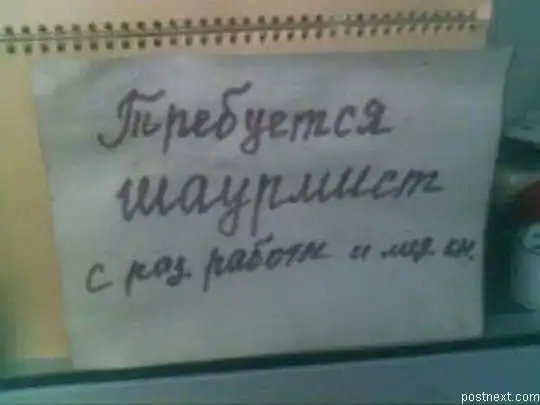 Требуется
шаурмист
с раз работы и мед кн.
postnext.com